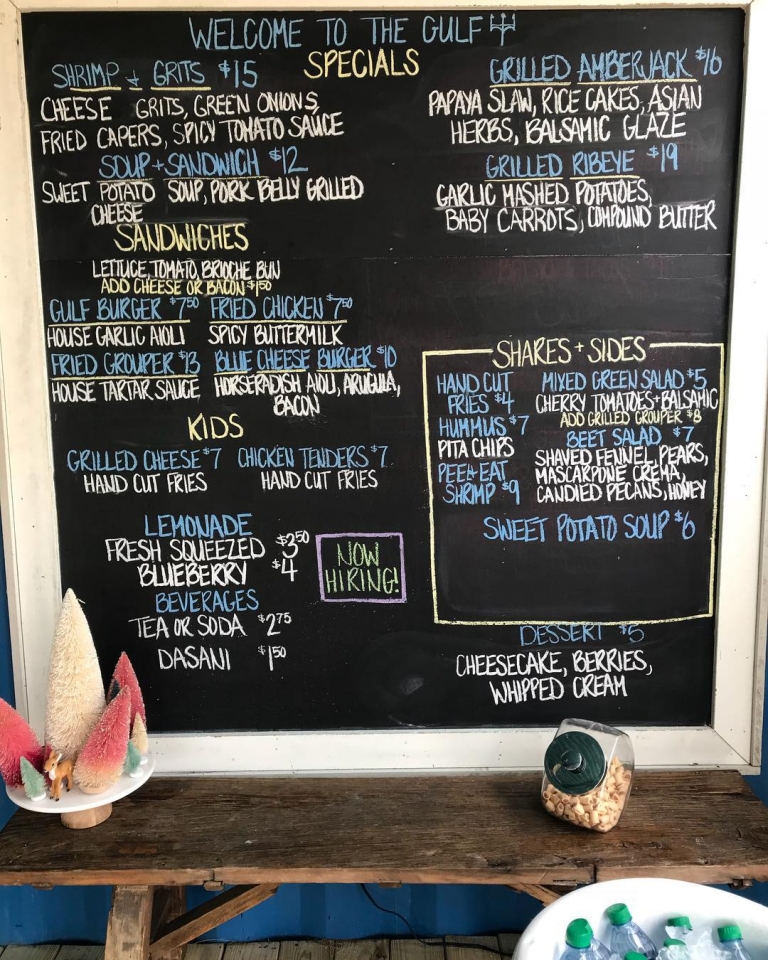 WELCOME TO THE GULF
SPECIALS
SHRIMP + GRITS $15
CHEESE GRITS, GREEN ONIONS,
FRIED CAPERS, SPICY TOMATO SAUCE
SOUP + SANDWICH $12
SWEET POTATO SOUP, PORK BELLY GRILLED
CHEESE
GRILLED AMBERJACK $16
PAPAYA SLAW, RICE CAKES, ASIAN
HERBS, BALSAMIC GLAZE
GRILLED RIBEYE $19
GARLIC MASHED POTATOES,
BABY CARROTS, COMPOUND BUTTER
SANDWICHES
LETTUCE, TOMATO, BRIOCHE BUN
ADD CHEESE OR BACON $150
GULF BURGER $750
HOUSE GARLIC AIOLI
FRIED CHICKEN $750
SPICY BUTTERMILK
FRIED GROUPER $13
HOUSE TARTAR SAUCE
BLUE CHEESE BURGER $10
HORSERADISH AIOLI, ARUGULA,
BACON
KIDS
GRILLED CHEESE $7
HAND CUT FRIES
CHICKEN TENDERS $7
HAND CUT FRIES
LEMONADE
FRESH SQUEEZED $350
BLUEBERRY $4
BEVERAGES
TEA OR SODA $275
DASANI $150
NOW
HIRING!
SHARES + SIDES
HAND CUT
FRIES $4
HUMMUS $7
PITA CHIPS
PEEL + EAT
SHRIMP $9
MIXED GREEN SALAD $5
CHERRY TOMATOES + BALSAMIC
ADD GRILLED GROUPER $8
BEET SALAD $7
SHAVED FENNEL, PEARS,
MASCARPONE CREMA,
CANDIED PECANS, HONEY
SWEET POTATO SOUP $6
DESSERT $5
CHEESECAKE, BERRIES,
WHIPPED CREAM